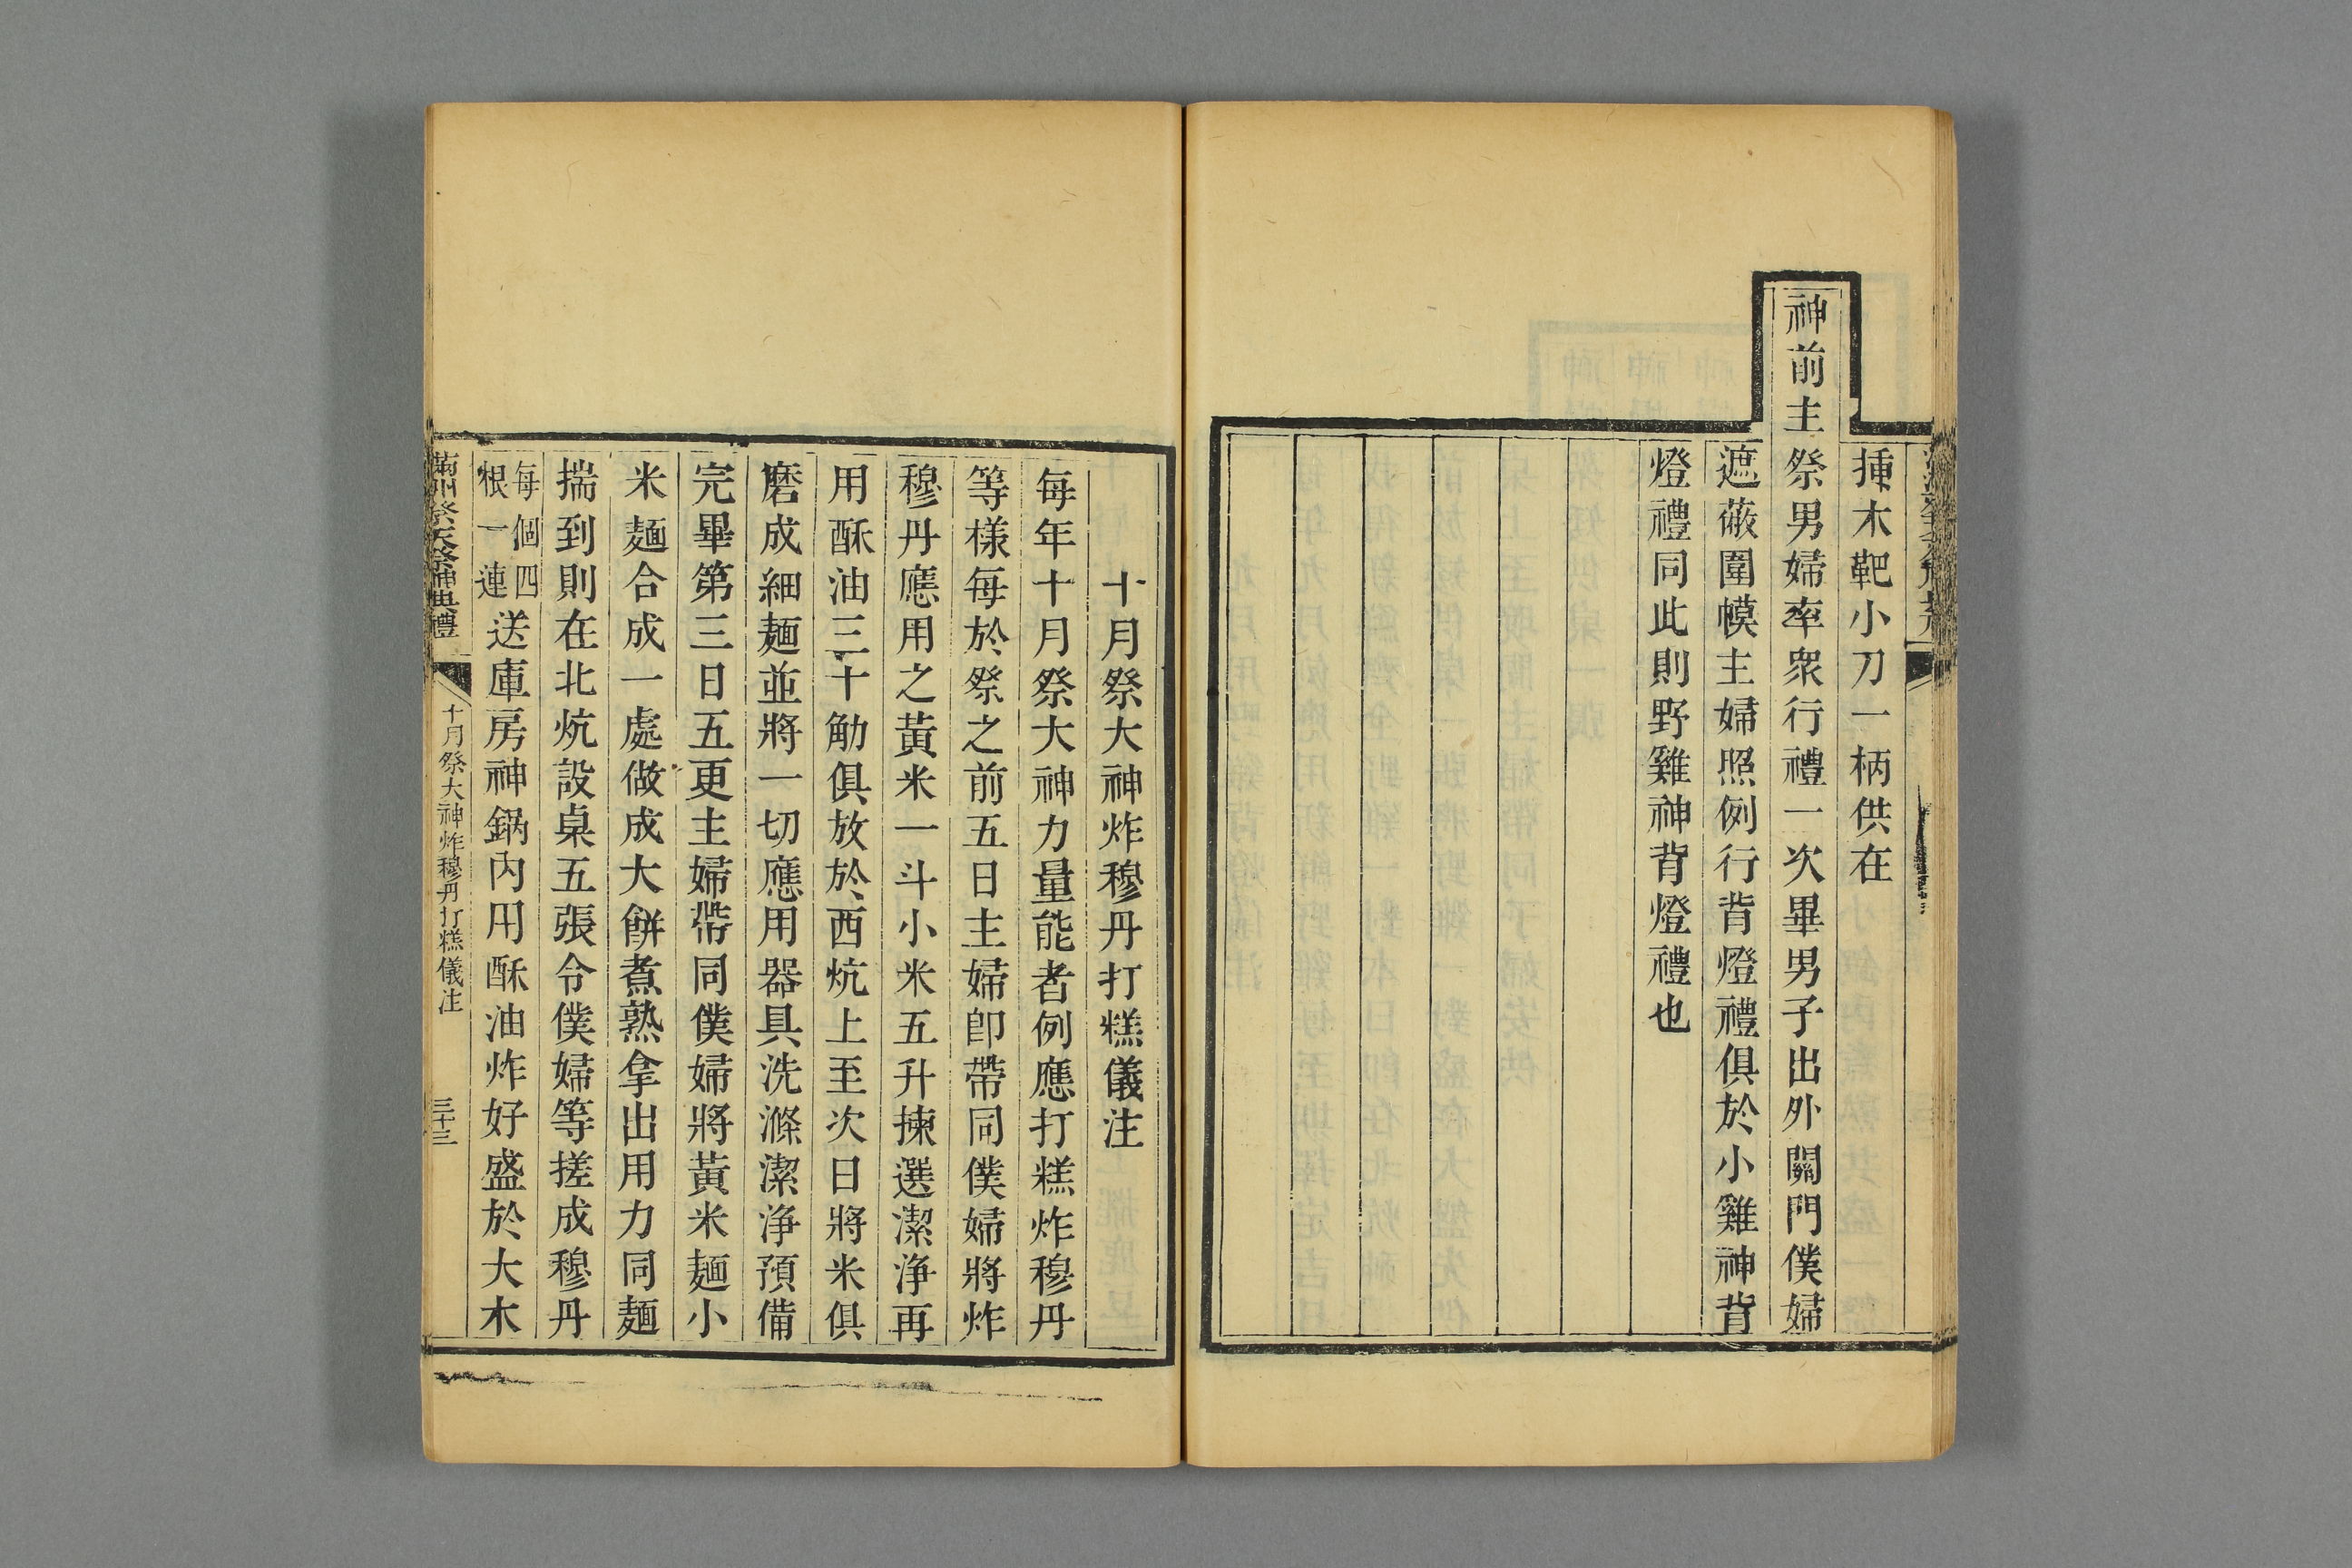 揷木靶小刀一柄供在
神前主祭男婦率衆行禮一次畢男子出外關門僕婦
遮蔽圍幙主婦照例行背燈禮俱於小雞神背
燈禮同此則野雞神背燈禮也
十月祭大神炸穆丹打糕儀注
每年十月祭大神力量能者例應打糕炸穆丹
等樣每於祭之前五日主婦卽帶同僕婦將炸
穆丹應用之黃米一斗小米五升揀選潔淨再
用酥油三十觔俱放於西炕上至次日將米俱
磨成細麺並將一切應用器具洗滌潔淨預備
完畢第三日五更主婦帶同僕婦將黃米麺小
米麺合成一處做成大餅煮熟拿出用力同麺
揣到則在北炕設桌五張令僕婦等搓成穆丹
每個四
根一連
送庫房神鍋內用酥油炸好盛於大木
滿洲祭天祭神典禮
十月祭大神炸穆丹打糕儀注
三十三